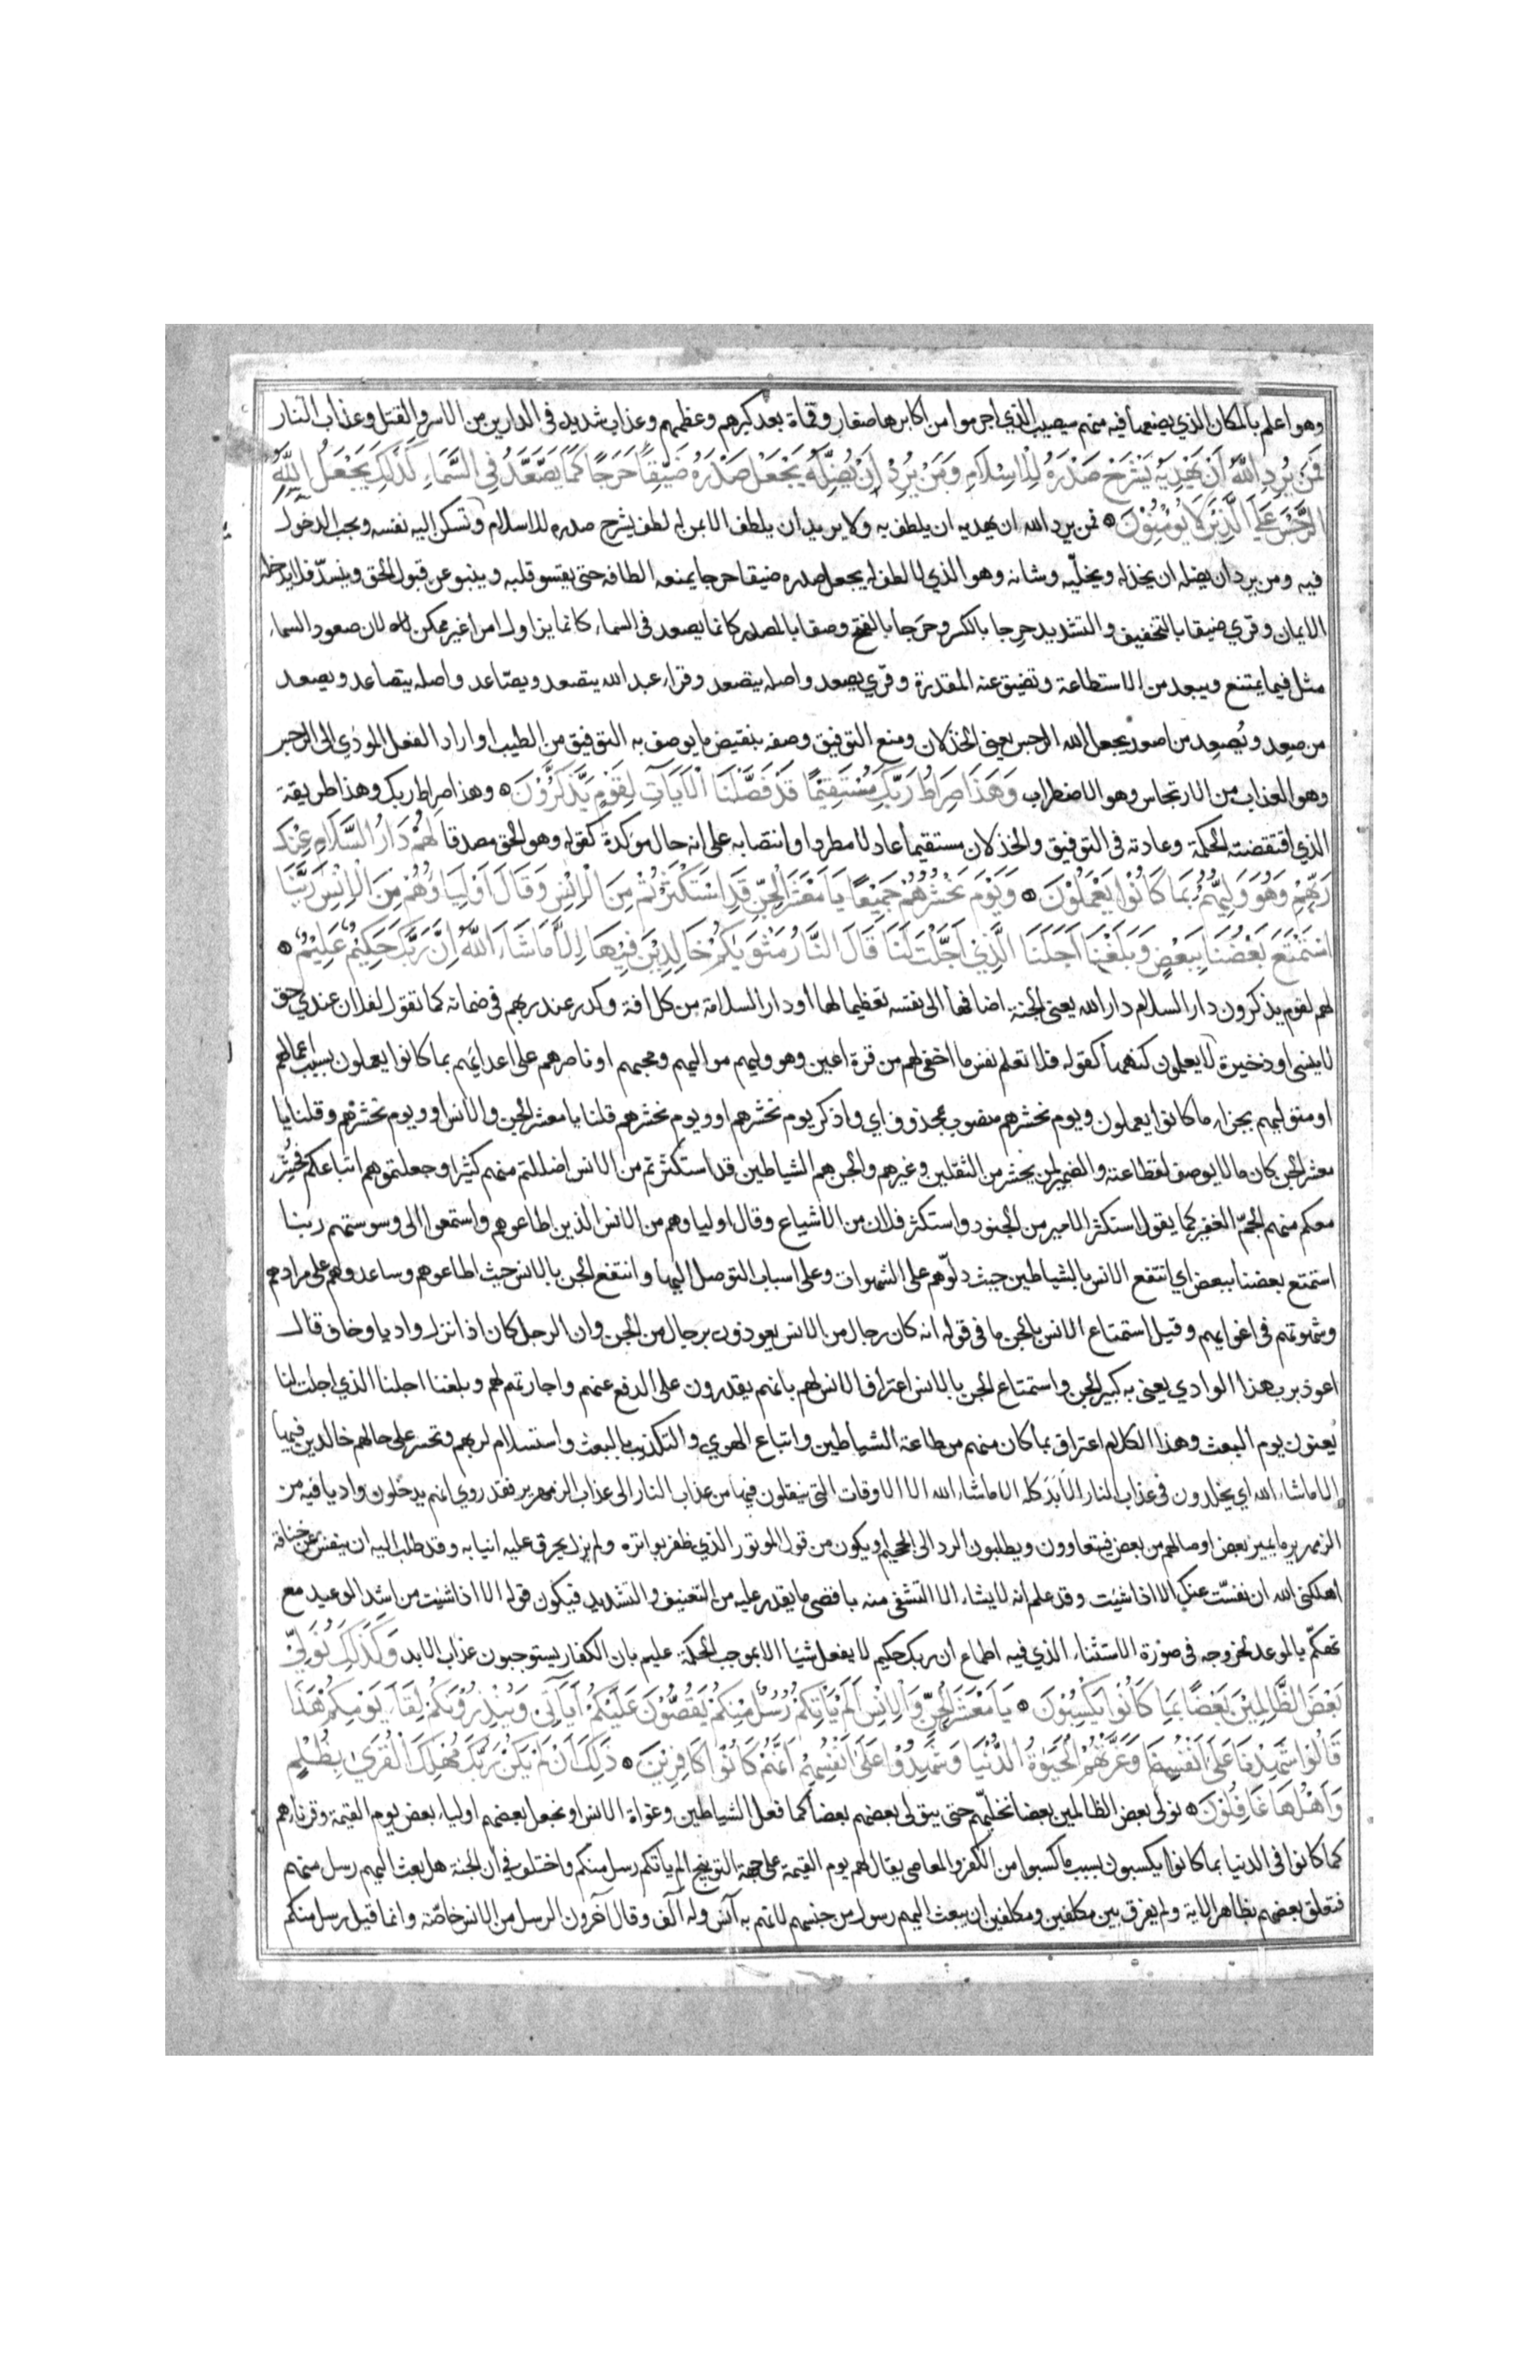 وهو اعلم بالمكان الذي يضعها فيه منهم سيصيب الذي اجرموا من اكابرها صغار وقماة بعد كبرهم وعظمهم وعذاب شديد في الدارين من الاسر والقتل وعذاب النار
فَمَنْ يُرِدِ اللَّهُ أَنْ يَهْدِيَهُ يَشْرَحْ صَدْرَهُ لِلْاِسْلَامِ وَمَنْ يُرِدْ أَنْ يُضِلَّهُ يَجْعَلْ صَدْرَهُ ضَيِّقًا حَرَجًا كَمَا يَصَّعَّدُ فِي السَّمَاءِ كَذَلِكَ يَجْعَلُ اللَّهُ
الرِّجْسَ عَلَى الَّذِينَ لَا يُؤْمِنُوْنَ ۞ فمن يرد الله ان يهديه ان يلطف به ولا يريد ان يلطف الا بمن له لطف يشرح صدره للاسلام وتسكن اليه نفسه ويحب الدخول
فيه ومن يرد ان يضله ان يخذله ويخليّه وشانه وهو الذي لا لطف له يجعل صدره ضيقا حرجا يمنعه الطافه حتى يقسو قلبه وينبو عن قبول الحق وينسدّ فلا يدخله
الايمان وقري ضيقا بالتخفيف والتشديد حرِجا بالكسر وحرَجا بالفتح وصفا بالمصدر كانما يصعد في السماء كانما يزاول امرا غير ممكن لان صعود السماء
مثل فيما يمتنع ويبعد من الاستطاعة وتضيق عنه المقدرة وقري يصعد واصله يتصعد وقراء عبد الله يتصعد ويصّاعد واصله يتصاعد ويصعد
من صعِد ويُصعِد من اصعد يجعل الله الرجس يعني الخذلان ومنع التوفيق وصفه بنقيض ما يوصف به التوفيق من الطيب او اراد الفعل المودي الى الرجس
وهو العذاب من الارتجاس وهو الاضطراب وَهَذَا صِرَاطُ رَبِّكَ مُسْتَقِيْمًا قَدْ فَصَّلْنَا الْاَيَاتِ لِقَوْمٍ يَذَّكَّرُوْنَ ۞ وهذا صراط ربك وهذا طريقة
الذي اقتضته الحكمة وعادته في التوفيق والخذلان مستقيما عادلا مطردا وانتصابه على انه حال موكدة كقوله وهو الحق مصدقا لَهُمْ دَارُ السَّلَامِ عِنْدَ
رَبِّهِمْ وَهُوَ وَلِيُّهُمْ بِمَا كَانُوْا يَعْمَلُوْنَ ۞ وَيَوْمَ نَحْشُرُهُمْ جَمِيْعًا يَا مَعْشَرَ الْجِنِّ قَدِ اسْتَكْثَرْتُمْ مِنَ الْاِنْسِ وَقَالَ اَوْلِيَاؤُهُمْ مِنَ الْاِنْسِ رَبَّنَا
اسْتَمْتَعَ بَعْضُنَا بِبَعْضٍ وَبَلَغْنَا اَجَلَنَا الَّذِي اَجَّلْتَ لَنَا قَالَ النَّارُ مَثْوَيٰكُمْ خَالِدِيْنَ فِيْهَا اِلَّا مَا شَاءَ اللَّهُ اِنَّ رَبَّكَ حَكِيْمٌ عَلِيْمٌ ۞
لهم لقوم يذكرون دار السلام دار الله يعني الجنة اضافها الى نفسه تعظيما لها او دار السلامة من كل افة وكدر عند ربهم في ضمانه كما تقول لفلان عندي حق
لا ينسى او ذخيرة لا يعلمون كنهها كقوله فلا تعلم نفس ما اخفي لهم من قرة اعين وهو وليهم مواليهم ومحبهم او ناصرهم على اعدايهم بما كانوا يعملون بسبب اعمالهم
او متوليهم بجزاء ما كانوا يعملون ويوم نحشرهم منصوب بمحذوف اي واذكر يوم نحشرهم او ويوم نحشرهم قلنا يا معشر الجن والانس او ويوم نحشرهم وقلنا يا
معشر الجن كان ما لا يوصف لفظاعته والضمير لمن يحشر من الثقلين وغيرهم والجن هم الشياطين قد استكثرتم من الانس اضللتم منهم كثيرا وجعلتموهم اتباعكم فحُشِر
معكم منهم الجمّ الغفير كما يقول استكثر الامير من الجنود واستكثر فلان من الاشياع وقال اولياوهم من الانس الذين اطاعوهم واستمعوا الى وسوستهم ربنا
استمتع بعضنا ببعض اي انتفع الانس بالشياطين حيث دلّوهم على الشهوات وعلى اسباب التوصل اليها وانتفع الجن بالانس حيث اطاعوهم وساعدوهم على مرادهم
وشهوتهم في اغوايهم وقيل استمتاع الانس بالجن ما في قوله انه كان رجال من الانس يعوذون برجال من الجن وان الرجل كان اذا نزل واديا وخاف قال
اعوذ برب هذا الوادي يعني به كبير الجن واستمتاع الجن بالانس اعتراف الانس لهم بانهم يقدرون على الدفع عنهم واجارتهم لهم وبلغنا اجلنا الذي اجلت لنا
يعنون يوم البعث وهذا الكلام اعتراف بما كان منهم من طاعة الشياطين واتباع الهوي والتكذيب بالبعث واستسلام لربهم وتحسر على حالهم خالدين فيها
الا ما شاء الله اي يخلدون في عذاب النار الاَبَدَ كله الا ما شاء الله الا الاوقات التي ينقلون فيها من عذاب النار الى عذاب الزمهرير فقد روي انهم يدخلون واديا فيه من
الزمهرير ما يميز بعض اوصالهم من بعض فيتعاوون ويطلبون الرد الى الجحيم او يكون من قول الموتور الذي ظفر بواتره ولم يزل يحرق عليه انيابه وقد طلب اليه ان ينفس عن خناقه
اهلكني الله ان نفسّت عنك الا اذا شيت وقد علم انه لا يشاء الا التشفي منه باقصى ما يقدر عليه من التعنيف والتشديد فيكون قوله الا اذا شيت من اشد الوعيد مع
تهكمّ بالموعد لخروجه في صورة الاستثناء الذي فيه اطماع ان ربك حكيم لا يفعل شيا الا بموجب الحكمة عليم بان الكفار يستوجبون عذاب الابد وَكَذَلِكَ نُوَلِّي
بَعْضَ الظَّالِمِيْنَ بَعْضًا بِمَا كَانُوْا يَكْسِبُوْنَ ۞ يَا مَعْشَرَ الْجِنِّ وَالْاِنْسِ اَلَمْ يَأْتِكُمْ رُسُلٌ مِنْكُمْ يَقُصُّوْنَ عَلَيْكُمْ اَيَاتِي وَيُنْذِرُوْنَكُمْ لِقَاءَ يَوْمِكُمْ هَذَا
قَالُوْا شَهِدْنَا عَلَى اَنْفُسِنَا وَغَرَّتْهُمُ الْحَيٰوةُ الدُّنْيَا وَشَهِدُوْا عَلَى اَنْفُسِهِمْ اَنَّهُمْ كَانُوْا كَافِرِيْنَ ۞ ذَلِكَ اَنْ لَمْ يَكُنْ رَبُّكَ مُهْلِكَ الْقُرَى بِظُلْمٍ
وَاَهْلُهَا غَافِلُوْنَ ۞ نولي بعض الظالمين بعضا نخليّهم حتى يتولى بعضهم بعضا كما فعل الشياطين وغواة الانس او نجعل بعضهم اولياء بعض يوم القيمة وقرناءهم
كما كانوا في الدنيا بما كانوا يكسبون بسبب ما كسبوا من الكفر والمعاصي يقال لهم يوم القيمة على جهة التوبيخ الم ياتكم رسل منكم واختلف في ان الجنة هل بعث اليهم رسل منهم
فتعلق بعضهم بظاهر الاية ولم يفرق بين مكلفين ومكلفين ان يبعث اليهم رسول من جنسهم لانهم به آنس وله آلف وقال آخرون الرسل من الانس خاصّة وانما قيل رسل منكم